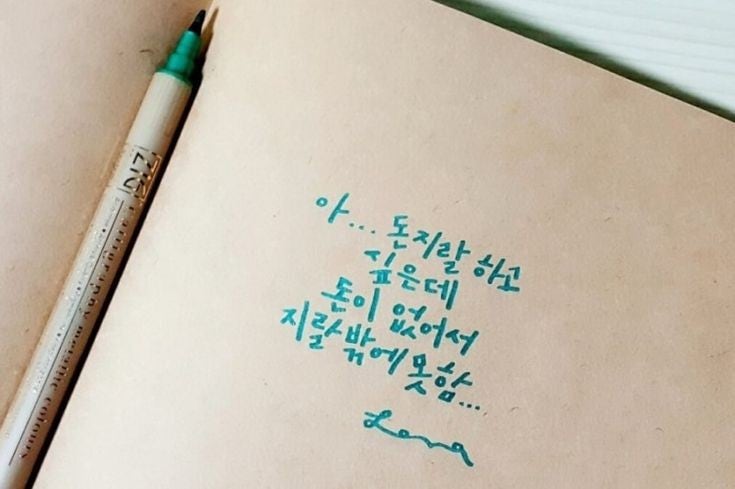 아... 돈지랄 하고
싶은데
돈이 없어서
지랄밖에 못함...
Lena
ZIG
Calligraphy metallic colours